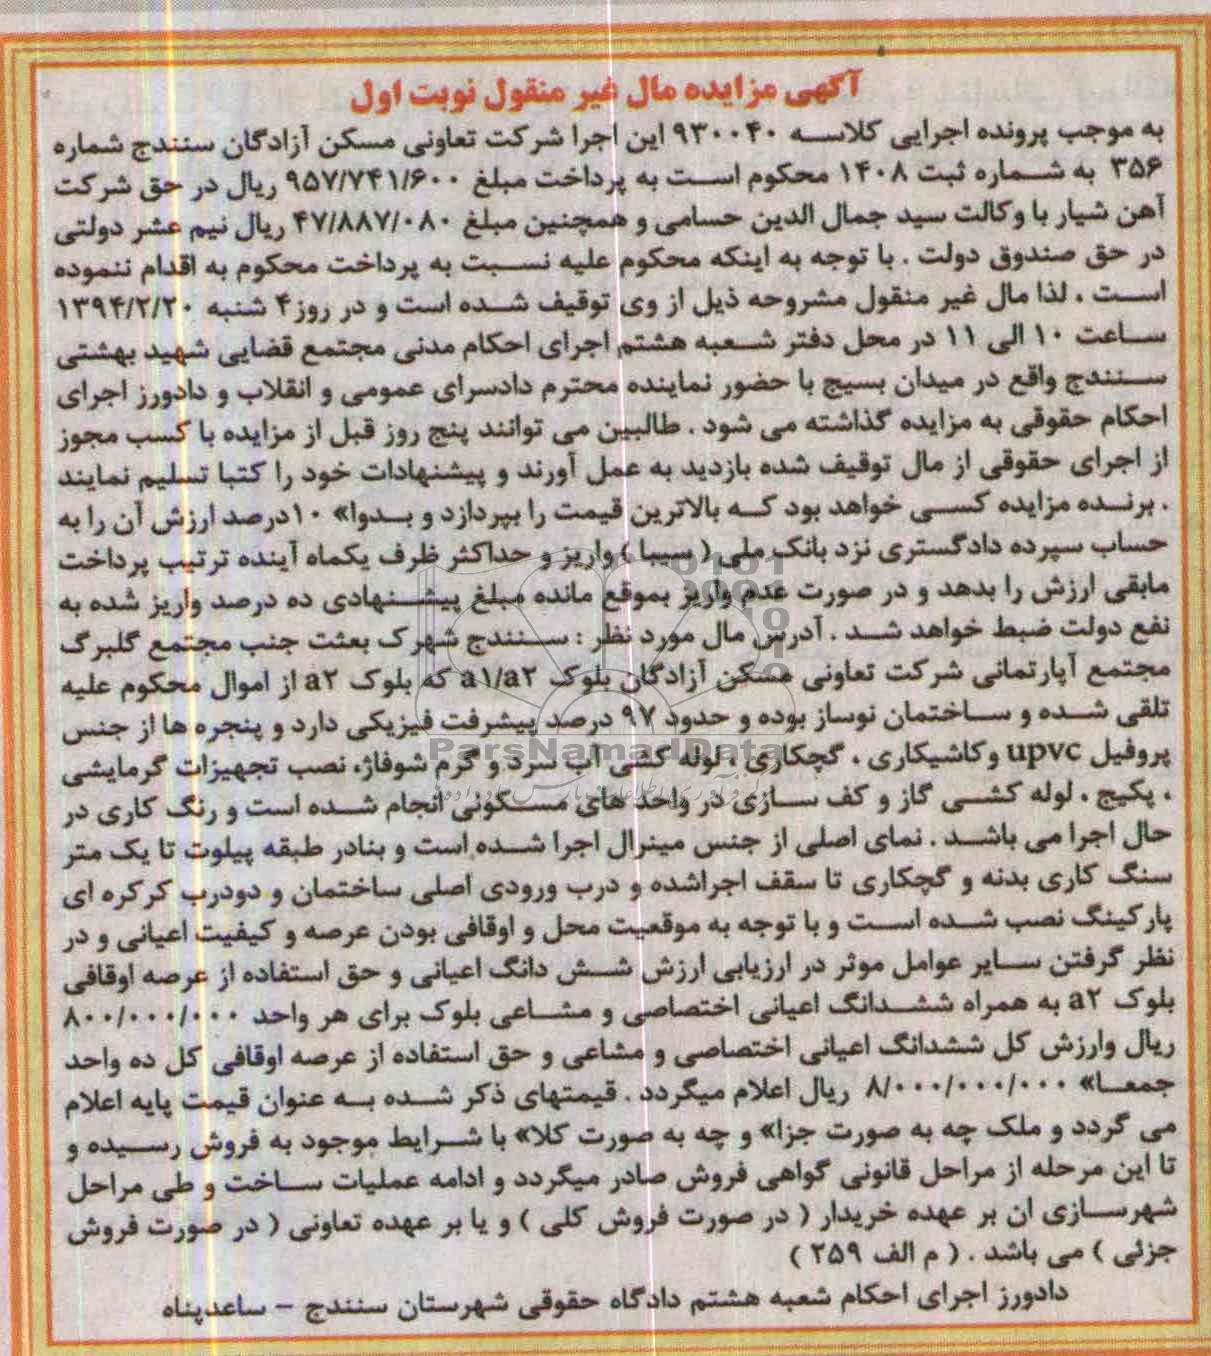 آگهی مزایده مال غیر منقول نوبت اول
به موجب پرونده اجرایی کلاسه ۹۳۰۰۴۰ این اجرا شرکت تعاونی مسکن آزادگان سنندج شماره
۳۵۶ به شماره ثبت ۱۴۰۸ محکوم است به پرداخت مبلغ ۹۵۷/۷۴۱/۶۰۰ ریال در حق شرکت
آهن شیار با وکالت سید جمال الدین حسامی و همچنین مبلغ ۴۷/۸۸۷/۰۸۰ ریال نیم عشر دولتی
در حق صندوق دولت . با توجه به اینکه محکوم علیه نسبت به پرداخت محکوم به اقدام ننموده
است ، لذا مال غیر منقول مشروحه ذیل از وی توقیف شده است و در روز۴ شنبه ۱۳۹۴/۲/۲۰
ساعت ۱۰ الی ۱۱ در محل دفتر شعبه هشتم اجرای احکام مدنی مجتمع قضایی شهید بهشتی
سنندج واقع در میدان بسیج با حضور نماینده محترم دادسرای عمومی و انقلاب و دادورز اجرای
احکام حقوقی به مزایده گذاشته می شود . طالبین می توانند پنج روز قبل از مزایده با کسب مجوز
از اجرای حقوقی از مال توقیف شده بازدید به عمل آورند و پیشنهادات خود را کتبا تسلیم نمایند
. برنده مزایده کسی خواهد بود که بالاترین قیمت را بپردازد و بدوا» ۱۰درصد ارزش آن را به
حساب سپرده دادگستری نزد بانک ملی ( سیبا ) واریز و حداکثر ظرف یکماه آینده ترتیب پرداخت
مابقی ارزش را بدهد و در صورت عدم واریز بموقع مانده مبلغ پیشنهادی ده درصد واریز شده به
نفع دولت ضبط خواهد شد . آدرس مال مورد نظر : سنندج شهرک بعثت جنب مجتمع گلبرگ
مجتمع آپارتمانی شرکت تعاونی مسکن آزادگان بلوک a۱/a۲ که بلوک a۲ از اموال محکوم علیه
تلقی شده و ساختمان نوساز بوده و حدود ۹۷ درصد پیشرفت فیزیکی دارد و پنجره ها از جنس
پروفیل upvc وکاشیکاری ، گچکاری ، لوله کشی آب سرد و گرم شوفاژ، نصب تجهیزات گرمایشی
، پکیج ، لوله کشی گاز و کف سازی در واحد های مسکونی انجام شده است و رنگ کاری در
حال اجرا می باشد . نمای اصلی از جنس مینرال اجرا شده است و بنادر طبقه پیلوت تا یک متر
سنگ کاری بدنه و گچکاری تا سقف اجراشده و درب ورودی اصلی ساختمان و دودرب کرکره ای
پارکینگ نصب شده است و با توجه به موقعیت محل و اوقافی بودن عرصه و کیفیت اعیانی و در
نظر گرفتن سایر عوامل موثر در ارزیابی ارزش شش دانگ اعیانی و حق استفاده از عرصه اوقافی
بلوک a۲ به همراه ششدانگ اعیانی اختصاصی و مشاعی بلوک برای هر واحد ۸۰۰/۰۰۰/۰۰۰
ریال وارزش کل ششدانگ اعیانی اختصاصی و مشاعی و حق استفاده از عرصه اوقافی کل ده واحد
جمعا» ۸/۰۰۰/۰۰۰/۰۰۰ ریال اعلام میگردد . قیمتهای ذکر شده به عنوان قیمت پایه اعلام
می گردد و ملک چه به صورت جزا» و چه به صورت کلا» با شرایط موجود به فروش رسیده و
تا این مرحله از مراحل قانونی گواهی فروش صادر میگردد و ادامه عملیات ساخت و طی مراحل
شهرسازی ان بر عهده خریدار ( در صورت فروش کلی ) و یا بر عهده تعاونی ( در صورت فروش
جزئی ) می باشد . ( م الف ۲۵۹ )
دادورز اجرای احکام شعبه هشتم دادگاه حقوقی شهرستان سنندج – ساعدپناه
ParsNamadData